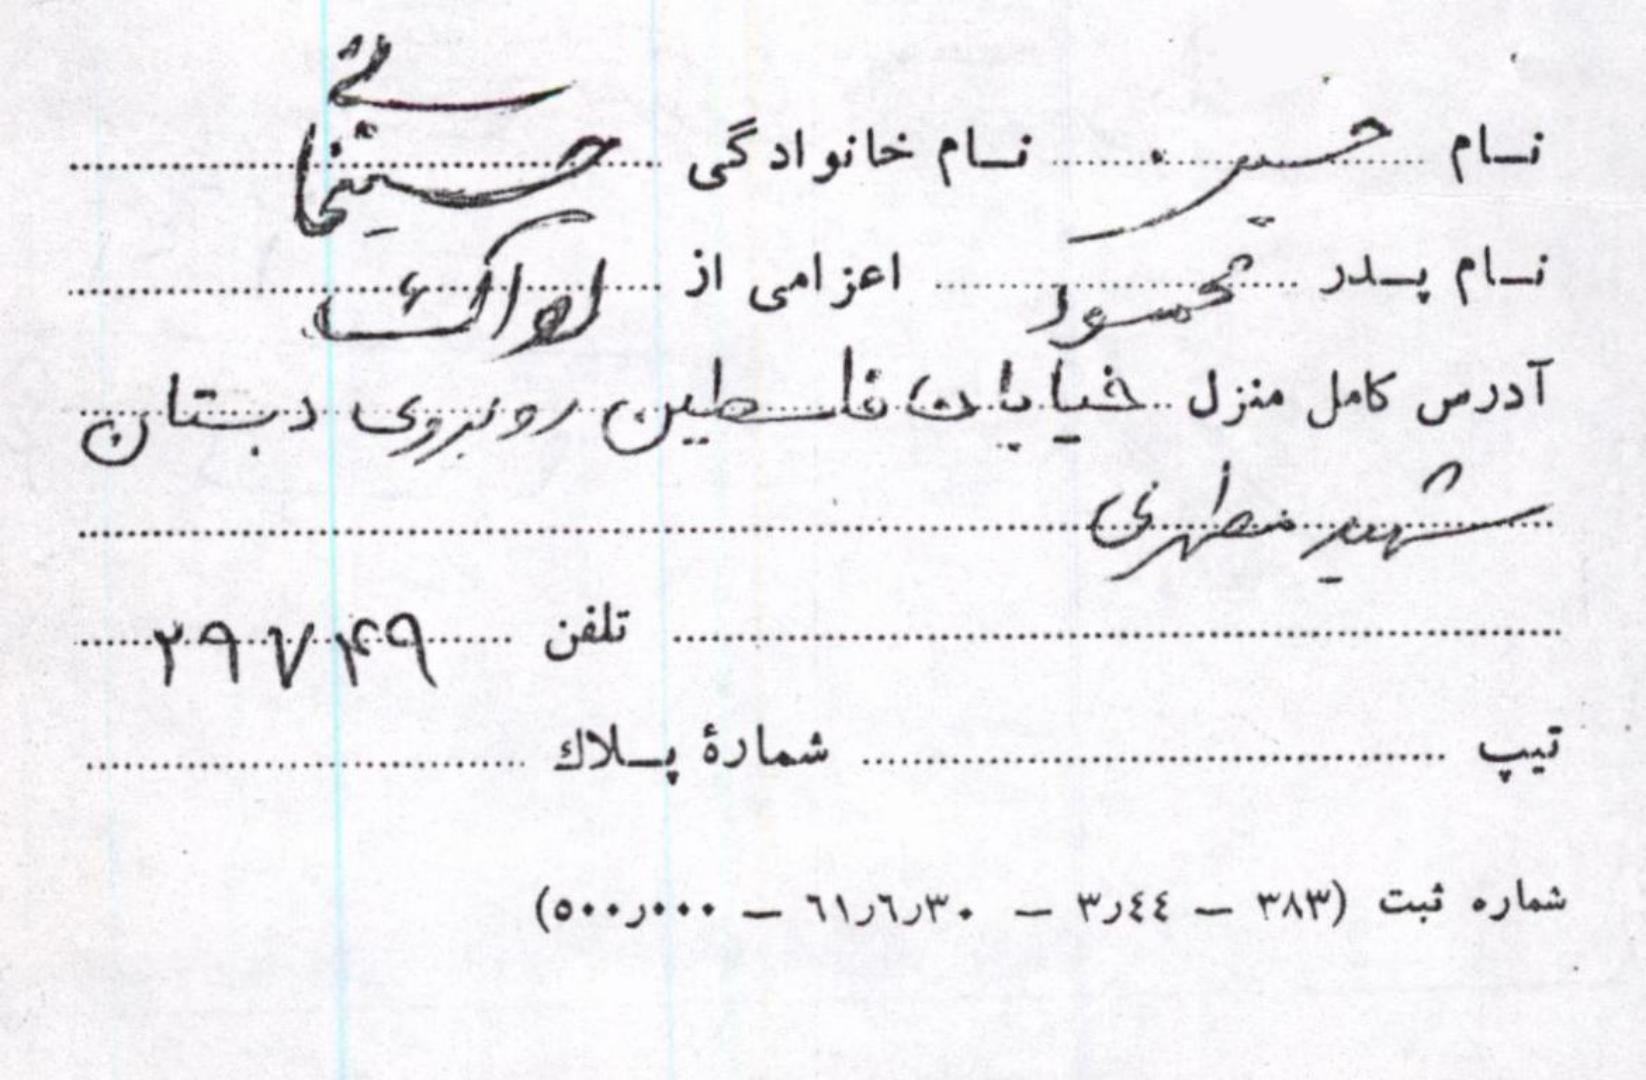 نام حسین نام خانوادگی حسینخانی
نام پدر محمود اعزامی از اراک
آدرس کامل منزل خیابان فلسطین روبروی دبستان
شهید مطهری
تلفن ۲۹۷۴۹
تیپ شمارهٔ پلاك
شماره ثبت (٣٨٣ – ٣ر٤٤ – ٦١ر٦ر٣٠ – ٥٠٠ر٠٠٠)